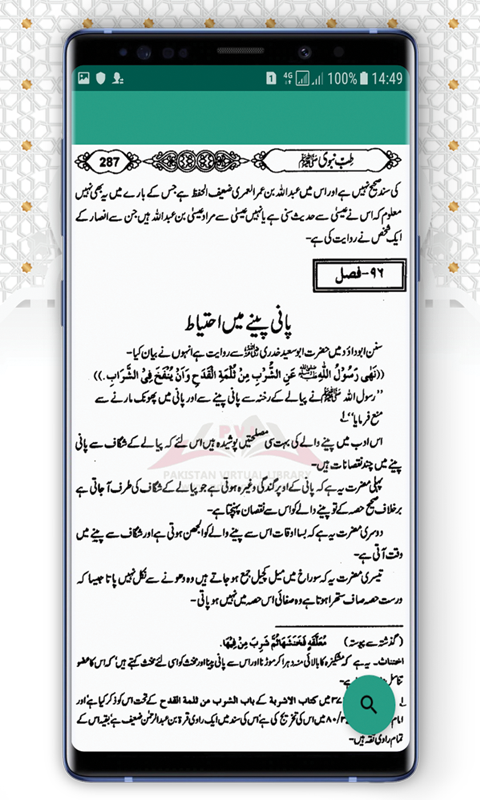 100% 14:49
287 طب نبوی ﷺ
کی سند صحیح نہیں ہے اور اس میں عبداللہ بن عمر العمری ضعیف الحفظ ہے جس کے بارے میں یہ بھی نہیں
معلوم کہ اس نے عیسیٰ سے حدیث سنی ہے یا نہیں عیسیٰ سے مراد عیسیٰ بن عبداللہ ہیں جن سے انصار کے
ایک شخص نے روایت کی ہے۔
۹۶- فصل
پانی پینے میں احتیاط
سنن ابوداؤد میں حضرت ابوسعید خدری سے روایت ہے انہوں نے بیان کیا۔
((نَهٰى رَسُوْلُ اللّٰهِ ﷺ عَنِ الشُّرْبِ مِنْ ثُلْمَةِ الْقَدَحِ وَاَنْ يَنْفَخَ فِى الشَّرَابِ.))
"رسول اللہ ﷺ نے پیالے کے رخنہ سے پانی پینے سے اور پانی میں پھونک مارنے سے
منع فرمایا"
اس ادب میں پینے والے کی بہت سی مصلحتیں پوشیدہ ہیں اس لئے کہ پیالے کے شگاف سے پانی
پینے میں چند نقصانات ہیں۔
PAKISTAN VIRTUAL LIBRARY
پہلی مضرت یہ ہے کہ پانی کے اوپر گندگی وغیرہ ہوتی ہے جو پیالے کے شگاف کی طرف آ جاتی ہے
برخلاف صحیح حصہ کے تو پینے والے کو اس سے نقصان پہنچتا ہے۔
دوسری مضرت یہ ہے کہ بسا اوقات اس سے پینے والے کو الجھن ہوتی ہے اور شگاف سے پینے میں
وقت آتی ہے۔
تیسری مضرت یہ کہ سوراخ میں میل کچیل جمع ہو جاتے ہیں وہ دھونے سے نکل نہیں پاتا جیسا کہ
درست حصہ صاف ستھرا ہوتا ہے وہ صفائی اس حصہ میں نہیں ہو پاتی۔
(گذشتہ سے پیوستہ) مُعَلَّقَةٍ فَخَنَثَهَا ثُمَّ شَرِبَ مِنْ فِيْهَا.
اختناث۔ یہ ہے کہ مشکیزہ کا بالائی منہ دہرا کر موڑنا اور اس سے پانی پینا اور مخنث کو اسی لئے مخنث کہتے ہیں کہ اس کا عضو
میں کتاب الاشربة کے باب الشرب من ثلمة القدح کے تحت اس کو ذکر کیا ہے اور
امام میں اس کی تخریج کی ہے اس کی سند میں ایک راوی قرۃ بن عبدالرحمٰن ضعیف ہے بقیہ اس کے
تمام راوی ثقہ ہیں۔